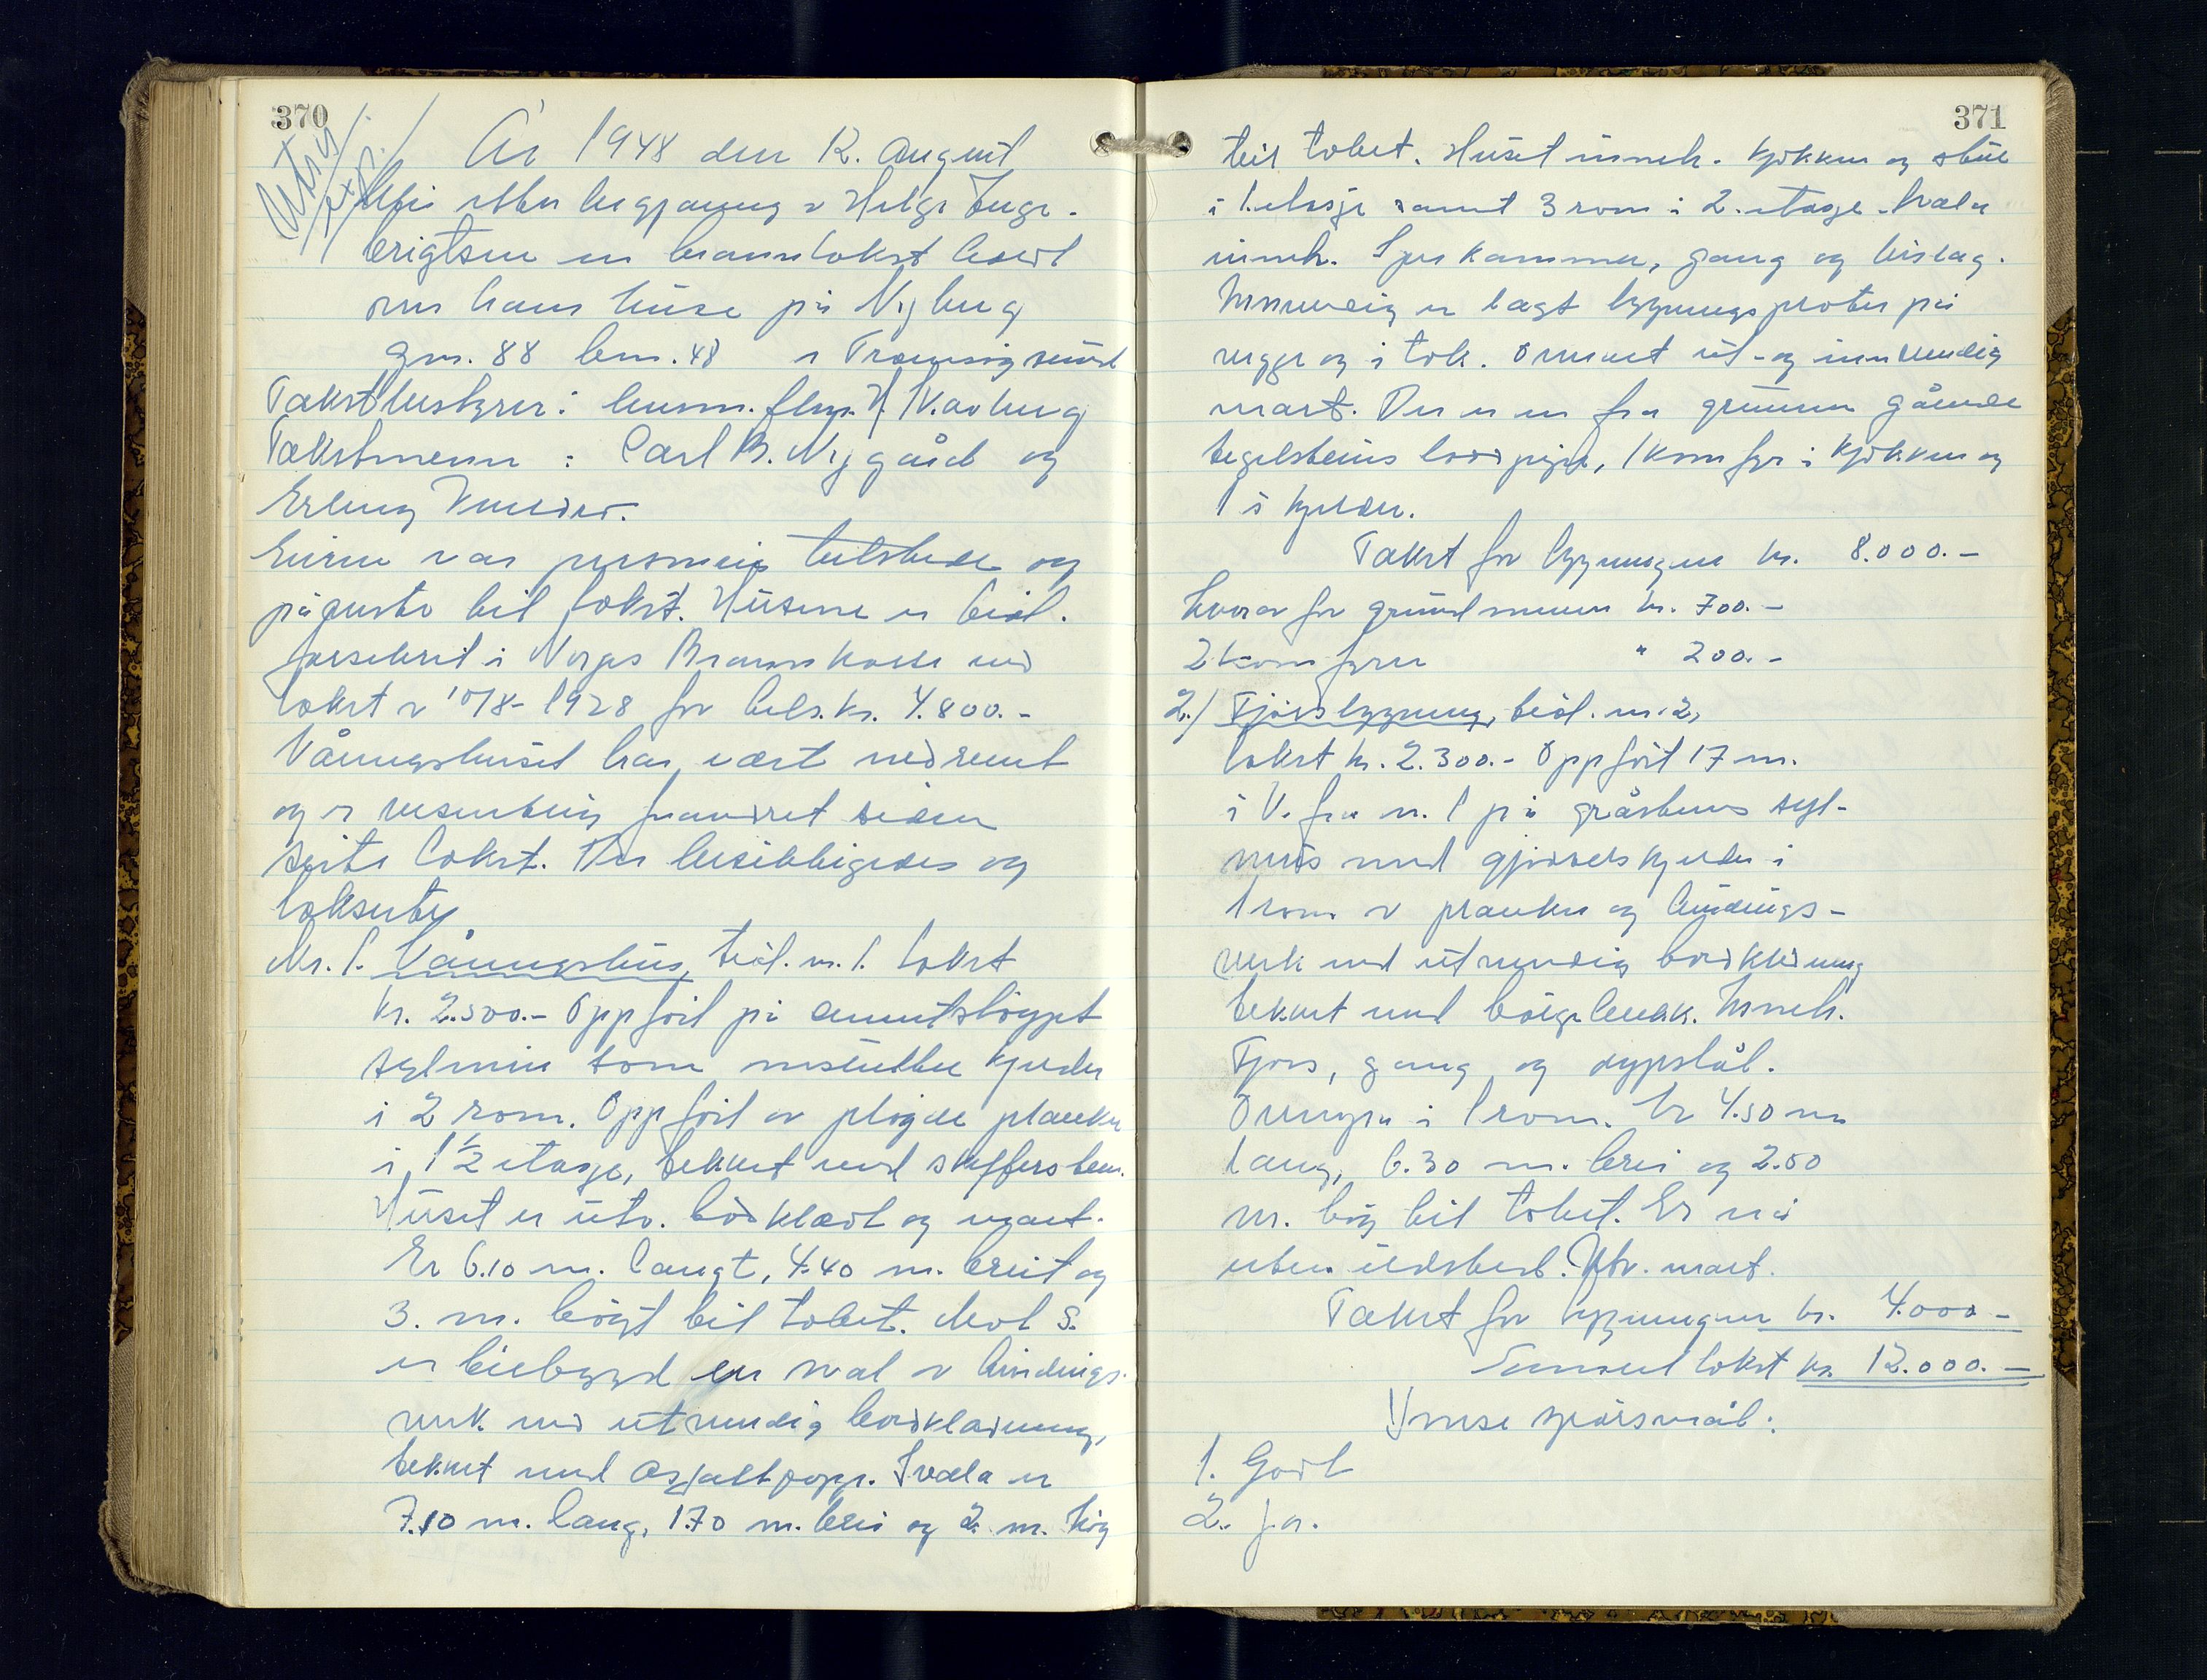 370
Utskr.
År 1948 den 12. august
ble etter begjæring av Helge Inge-
brigtsen en branntakst holdt
over hans huse på Nyberg
gnr. 88 bnr. 48 i Tranøysund
Takstbestyrer: lensm. flm. H. Kaarberg
Takstmenn: Carl B. Nygård og
Erling
Eieren var personlig tilstede og
påviste til takst. Husene er tidl.
forsikret i Norges Brannkasse ved
takst av 10/8-1928 for tils. kr. 4.800.-
Våningshuset har vært nedrent
og er vesentlig forandret siden
siste takst. Der besiktigedes og
taksertes
Nr. 1. Våningshus, tidl. nr. 1. takst
kr. 2.500.- Oppført på sementstøypt
sylmur som innslutter kjeller
i 2 rom. Oppført av pløgde planker
i 1 1/2 etasje, tekket med skifferstein.
Huset er utv. bordklædt og malt.
Er 6.10 m. langt, 4.40 m. breit og
3. m. høgt til taket. Mot S.
er tilbygd en sval av bindings-
verk med utvendig bordkledning,
tekket med asfaltpapp. Svala er
7.10 m. lang, 1.70 m. brei og 2. m. høg
371
til taket. Huset inneh. kjøkken og stue
i 1. etasje samt 3 rom i 2. etasje. Svala
inneh. Spiskammer, gang og bislag.
Innvendig er lagt bygningsplater på
vegger og i tak. Overalt ut- og innvendig
malt. Der er en fra grunnen gående
teglsteins loddpipe, 1 komfyr i kjøkken og
1 i kjeller.
Takst for bygningen kr. 8.000.-
hvorav for grunnmuren kr. 700.-
2 komfyrer " 200.-
2./ Fjøsbygning, tidl. nr. 2,
takst kr. 2.300.- Oppført 17 m.
i V. fra nr. 1 på gråsteins syl-
mur med gjødselskjeller i
1 rom av planker og bindings-
verk med utvendig bordkledning
tekket med bølgeblekk. Inneh.
Fjøs, gang og sypstål.
Overetg. i 1 rom. Er 4.50 m
lang, 6.30 m. brei og 2.50
m. høg til taket. Er nå
uten ildsted. Utv. malt.
Takst for bygningen kr. 4.000-
Samlet takst kr. 12.000.-
Ymse spørsmål:
1. Godt
2. ja.